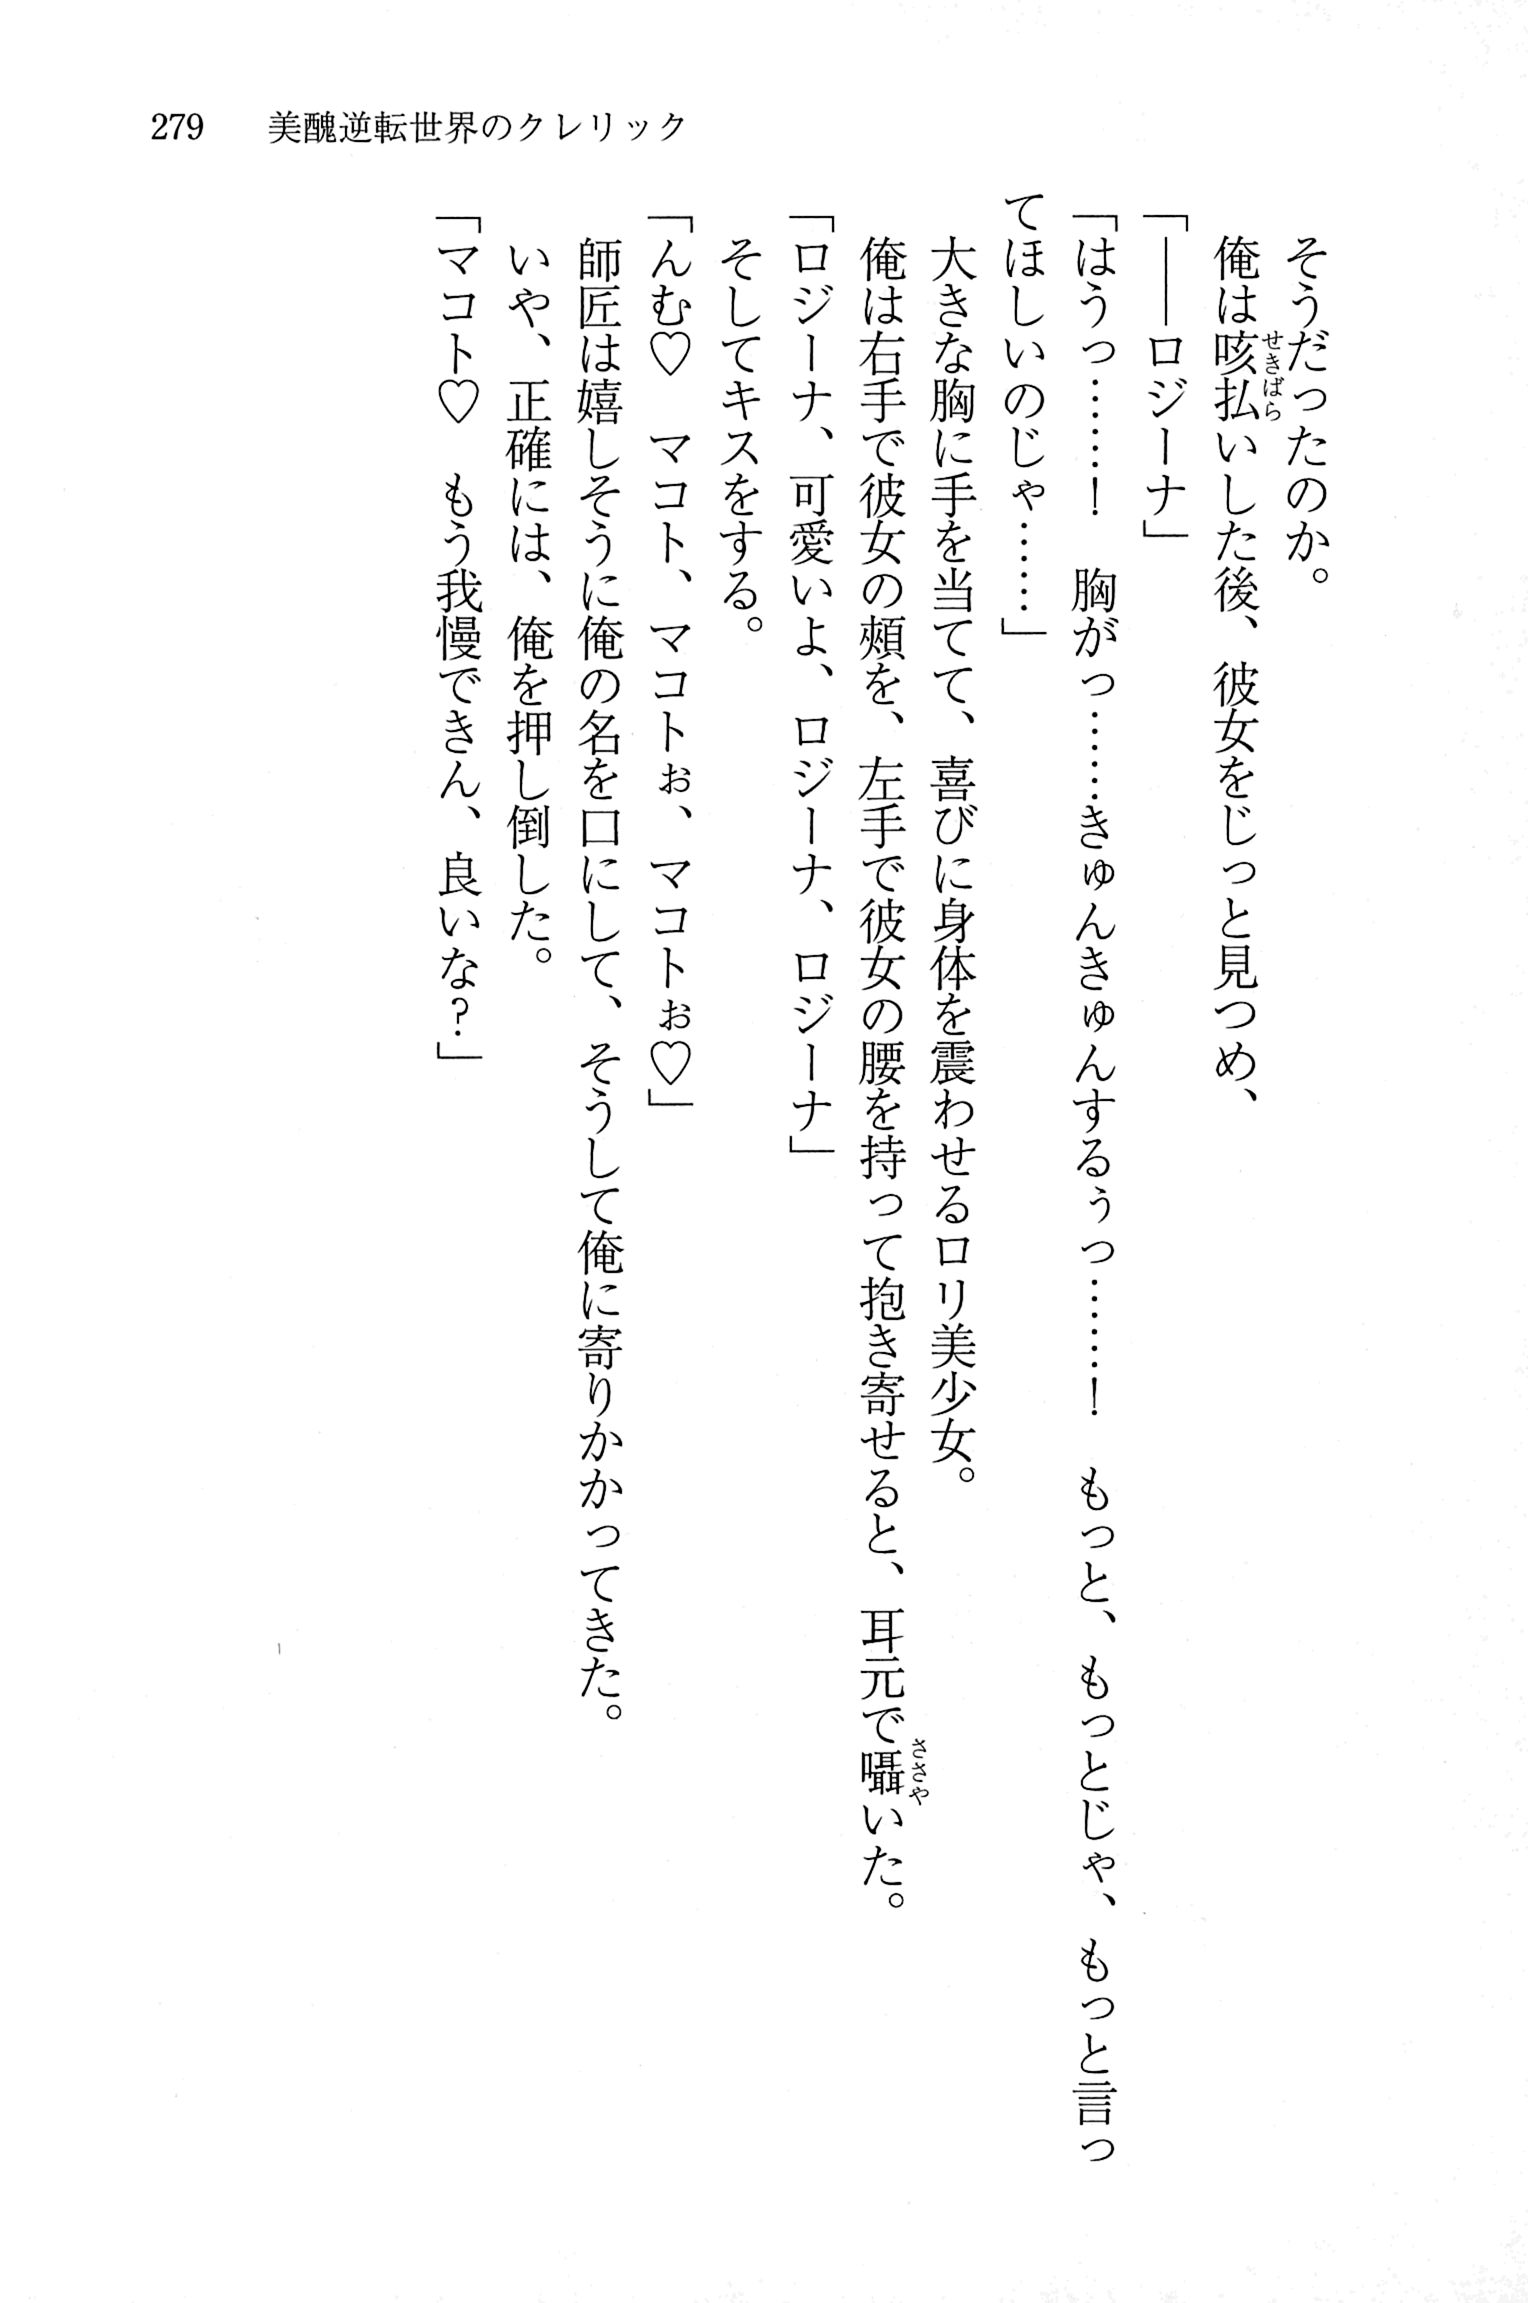 279 美醜逆転世界のクレリック
そうだったのか。
俺は咳払いした後、彼女をじっと見つめ、
せきばら
「――ロジーナ」
「はうっ……！　胸がっ……きゅんきゅんするぅっ……！　もっと、もっとじゃ、もっと言っ
てほしいのじゃ……」
大きな胸に手を当てて、喜びに身体を震わせるロリ美少女。
俺は右手で彼女の頬を、左手で彼女の腰を持って抱き寄せると、耳元で囁いた。
ささや
「ロジーナ、可愛いよ、ロジーナ、ロジーナ」
そしてキスをする。
「んむ♡　マコト、マコトぉ、マコトぉ♡」
師匠は嬉しそうに俺の名を口にして、そうして俺に寄りかかってきた。
いや、正確には、俺を押し倒した。
「マコト♡　もう我慢できん、良いな？」